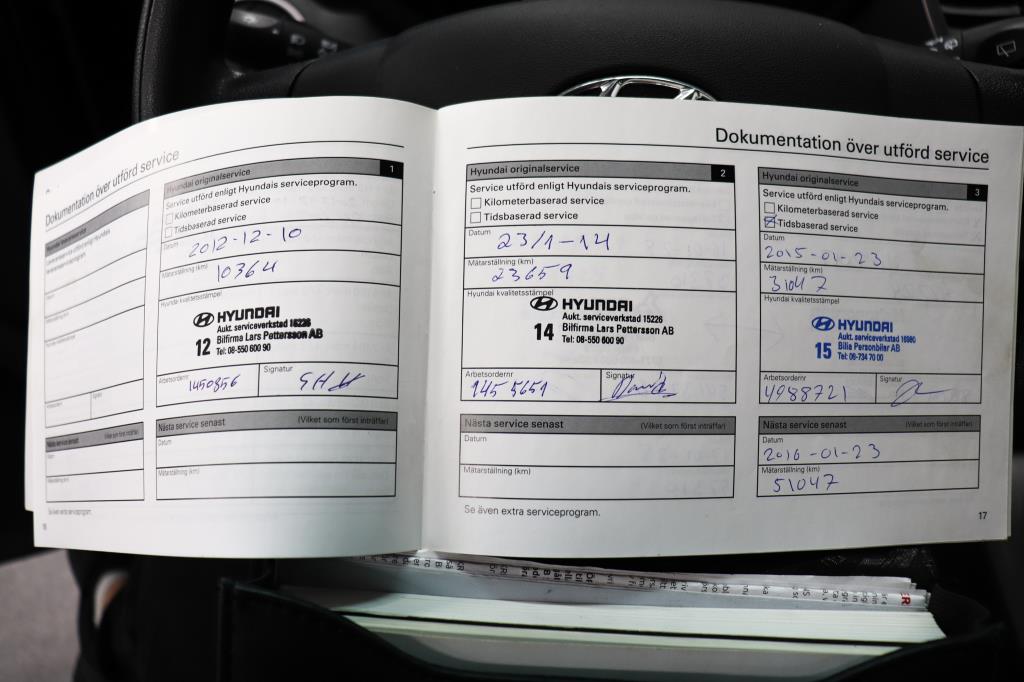 Dokumentation över utförd service
Hyundai originalservice 1
Service utförd enligt Hyundais serviceprogram.
Kilometerbaserad service
Tidsbaserad service
Datum
2012-12-10
Mätarställning (km)
10364
Hyundai kvalitetsstämpel
HYUNDAI
Aukt. serviceverkstad 15226
12 Bilfirma Lars Pettersson AB
Tel: 08-550 600 90
Arbetsordernr Signatur
1450856
Nästa service senast (Vilket som först inträffar)
Datum
Mätarställning (km)
Se även extra serviceprogram.
Dokumentation över utförd service
Hyundai originalservice 2
Service utförd enligt Hyundais serviceprogram.
Kilometerbaserad service
Tidsbaserad service
Datum
23/1-14
Mätarställning (km)
23659
Hyundai kvalitetsstämpel
HYUNDAI
Aukt. serviceverkstad 15226
14 Bilfirma Lars Pettersson AB
Tel: 08-550 600 90
Arbetsordernr Signatur
145 5651
Nästa service senast (Vilket som först inträffar)
Datum
Mätarställning (km)
Se även extra serviceprogram.
Hyundai originalservice 3
Service utförd enligt Hyundais serviceprogram.
Kilometerbaserad service
Tidsbaserad service
Datum
2015-01-23
Mätarställning (km)
31047
Hyundai kvalitetsstämpel
HYUNDAI
Aukt. serviceverkstad
15 Bilia Personbilar AB
Tel: 08-734 70 00
Arbetsordernr Signatur
4988721
Nästa service senast (Vilket som först inträffar)
Datum
2016-01-23
Mätarställning (km)
51047
17